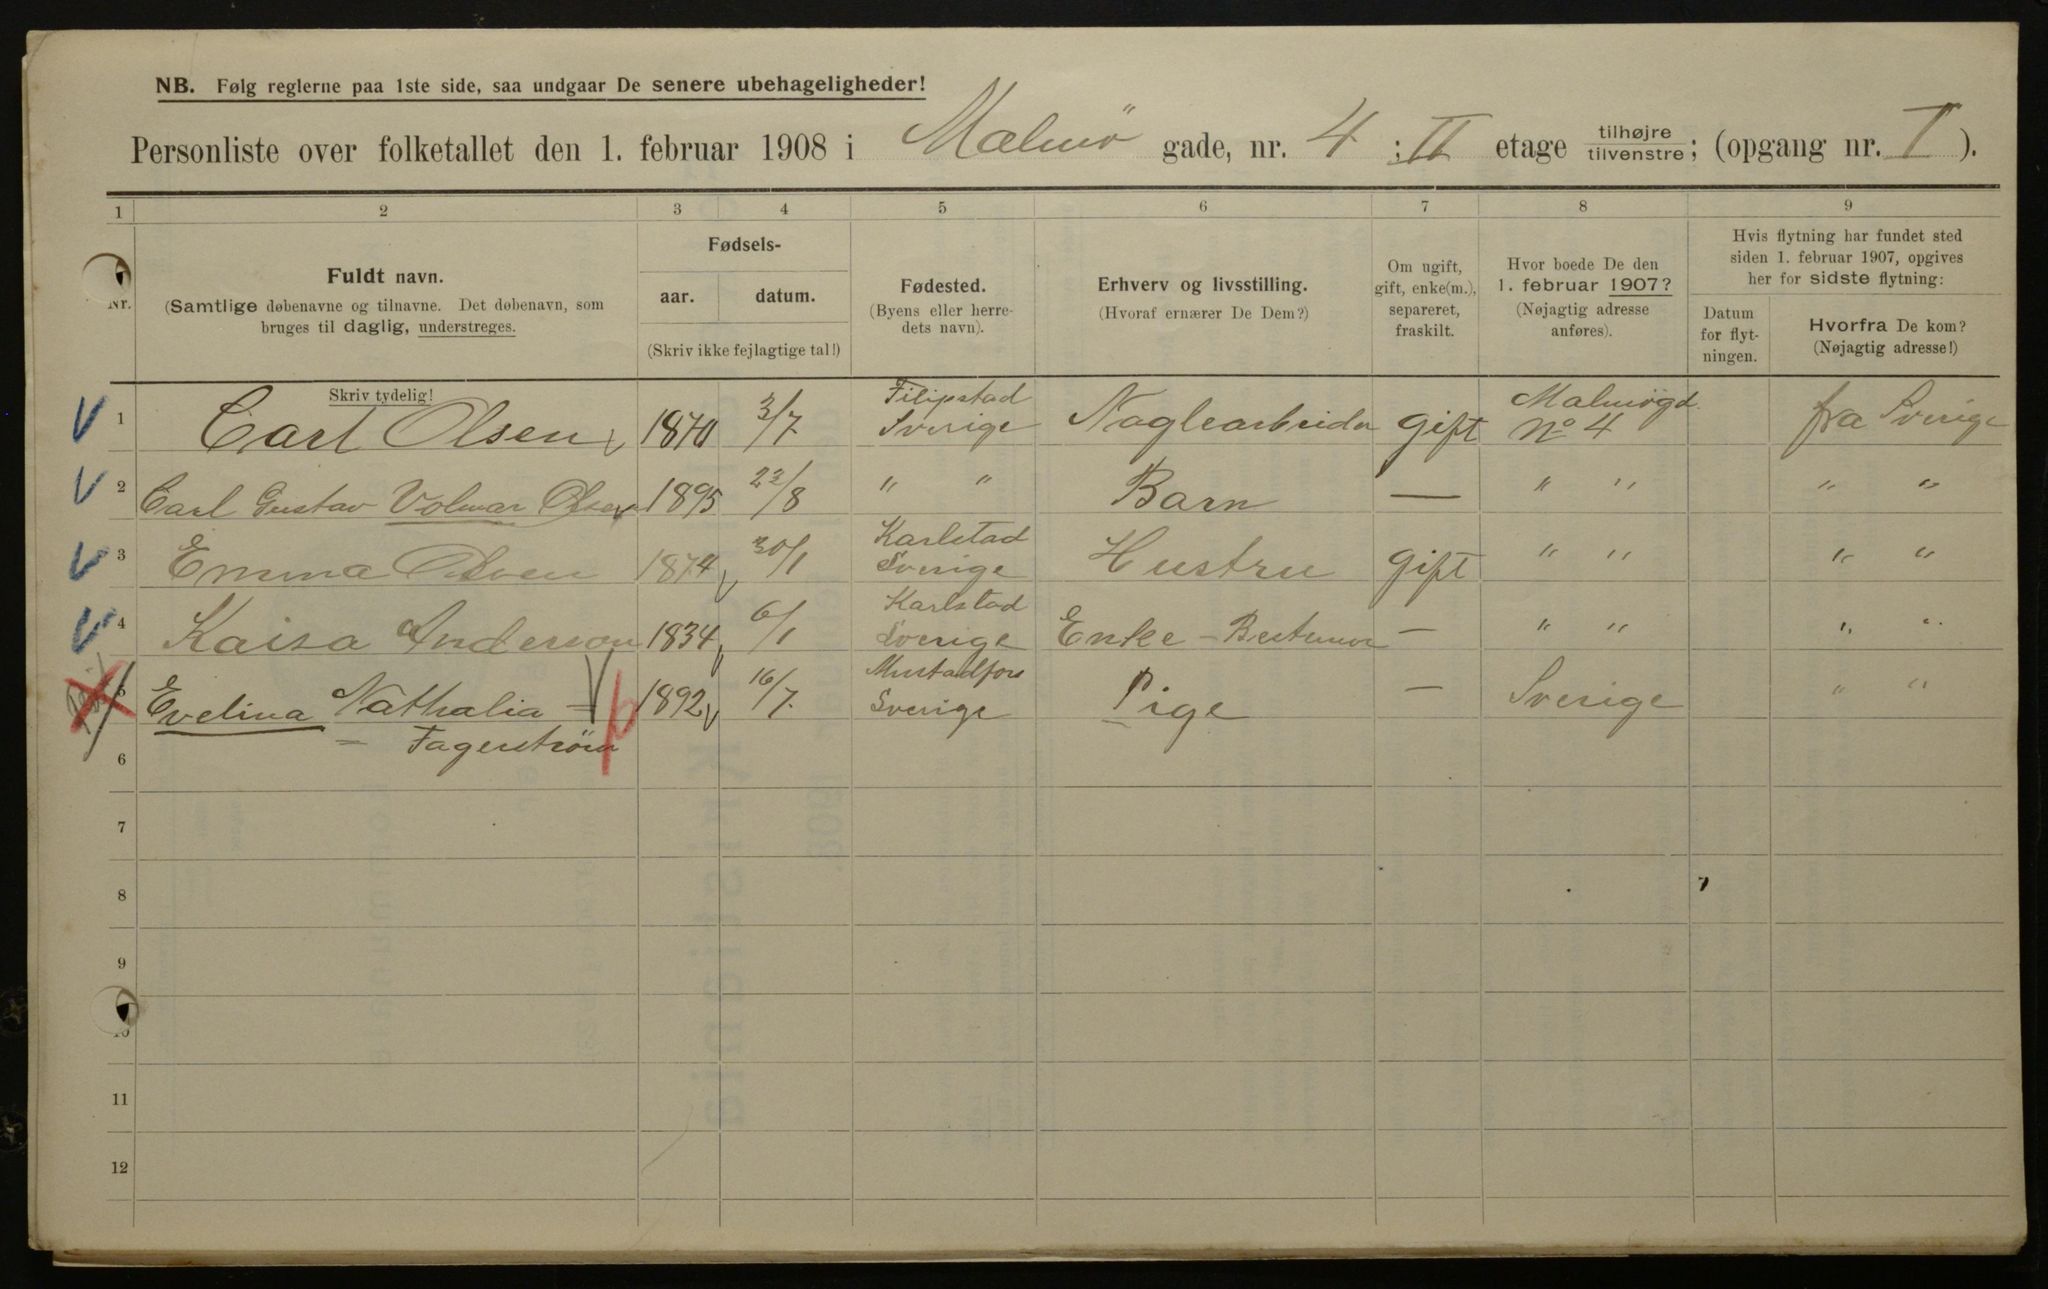 NB. Følg reglerne paa 1ste side, saa undgaar De senere ubehageligheder!
Personliste over folketallet den 1. februar 1908 i Malmö gade, nr. 4 ; II etage tilhøjre tilvenstre ; (opgang nr. I ).
1 2 3 4 5 6 7 8 9
Nr.
Fuldt navn.
(Samtlige døbenavne og tilnavne. Det døbenavn, som
bruges til daglig, understreges.
Skriv tydelig!
Fødsels-
aar. datum.
(Skriv ikke fejlagtige tal!)
Fødested.
(Byens eller herre-
dets navn).
Erhverv og livsstilling.
(Hvoraf ernærer De Dem?)
Om ugift,
gift, enke(m.),
separeret,
fraskilt.
Hvor boede De den
1. februar 1907?
(Nøjagtig adresse
anføres).
Hvis flytning har fundet sted
siden 1. februar 1907, opgives
her for sidste flytning:
Datum
for flyt-
ningen.
Hvorfra De kom?
(Nøjagtig adresse!)
Filipstad Malmögd.
1 Carl Olsen 1870 3/7 Sverige Naglearbeider gift No 4 fra Sverige
2 Carl Gustav Volmar Olsen 1895 22/8 " " Barn — " " " "
Karlstad
3 Emma Olsen 1874 30/1 Sverige Hustru gift " " " "
Karlstad
4 Kaisa Anderson 1834 6/1 Sverige Enke – Bestemor — " " " "
Mustadfors
5 Evelina Nathalia – 1892 16/7 Sverige Pige — Sverige " "
– Fagerström
6
7
8
9
10
11
12